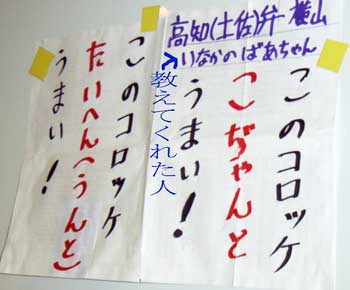 高知(土佐)弁 横山
いなかのばあちゃん
このコロッケ
こぢゃんと
うまい!
↑教えてくれた人
このコロッケ
たいへん(うんと)
うまい!